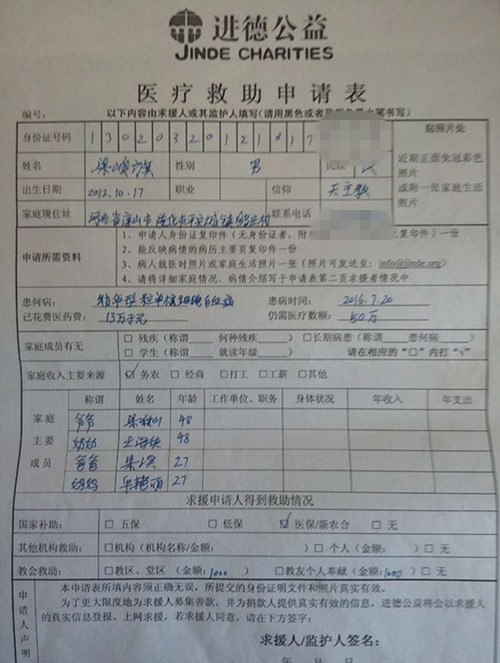 进德公益
JINDE CHARITIES
医疗救助申请表
编号: 以下内容由求援人或其监护人填写(请用黑色或者蓝黑色墨水笔书写)
身份证号码 1 3 0 2 0 3 2 0 1 2 1 0 1 7 贴照片处
姓名 梁 性别 男 近期正面免冠彩色照片
出生日期 2012.10.17 职业 信仰 天主教 或附一张家庭生活照片
家庭现住址 河北省唐山市 联系电话
申请所需资料
1、申请人身份证复印件(无身份证者,附 复印件)一份
2、能反映病情的病历主要页复印件一份
3、病人就医时照片或家庭生活照片一张(照片可发送至: info@jinde.org)
4、请将详细家庭情况、病情介绍写于申请表第二页求援者情况中
患何病: 幼年型粒单核细胞白血病 患病时间: 2016.7.20
已花费医药费: 13万元 仍需医疗数额: 50万
家庭成员有无 □ 残疾(称谓 何种残疾 ) □长期病患(称谓 患何病 )
□ 学生(称谓 就读年级 ) 请在相应的"□"内打"√"
家庭收入主要来源 ☑ 务农 □ 经商 □打工 □工薪 □其他
家庭主要成员 称谓 姓名 年龄 工作单位、职务 身体状况 年收入 年支出
爷爷 梁 山 48
奶奶 王 48
爸爸 梁 27
妈妈 艳丽 27
求援申请人得到救助情况
国家补助: □ 五保 □ 低保 ☑ 医保/新农合 □ 无
其他机构救助: □机构(机构名称/金额: ) □ 个人(金额: ) □ 无
教会救助: □教区、堂区(金额: 1000 ) □教友个人奉献(金额: 1000 ) □ 无
申请人声明
本申请表所填内容须正确无误,所提交的身份证明文件和照片真实有效。
为了更大限度地为求援人募集善款,并为捐款人提供真实有效的信息,进德公益将会以求援人
的真实信息登报、上网求援,若求援人同意,请在下方签字:
求援人/监护人签名:
年 月 日